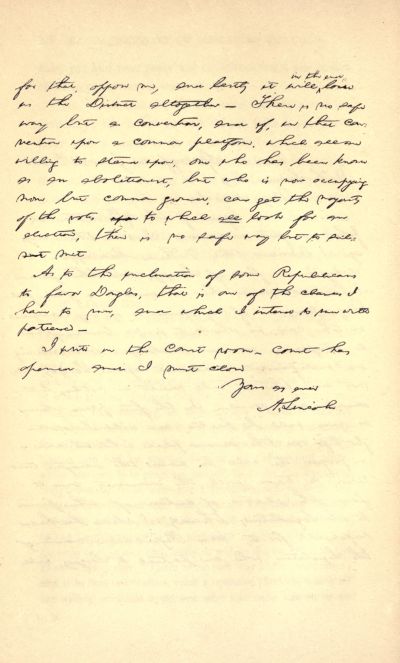 in the end,
for that, oppose me, and surely it will, lose
us the District altogether — There is no safe
way but a convention; and if, in that con-
vention upon a common platform, which all are
willing to stand upon, one who has been known
as an abolitionist, but who is now occupying
none but common ground, can get the majority
of the votes to which all look for an
election, there is no safe way but to sub-
mit.
As to the inclination of some Republicans
to favor Douglas, that is one of the chances I
have to run, and which I intend to run with
patience —
I write in the court room. Court has
opened, and I must close
Yours as ever
A. Lincoln